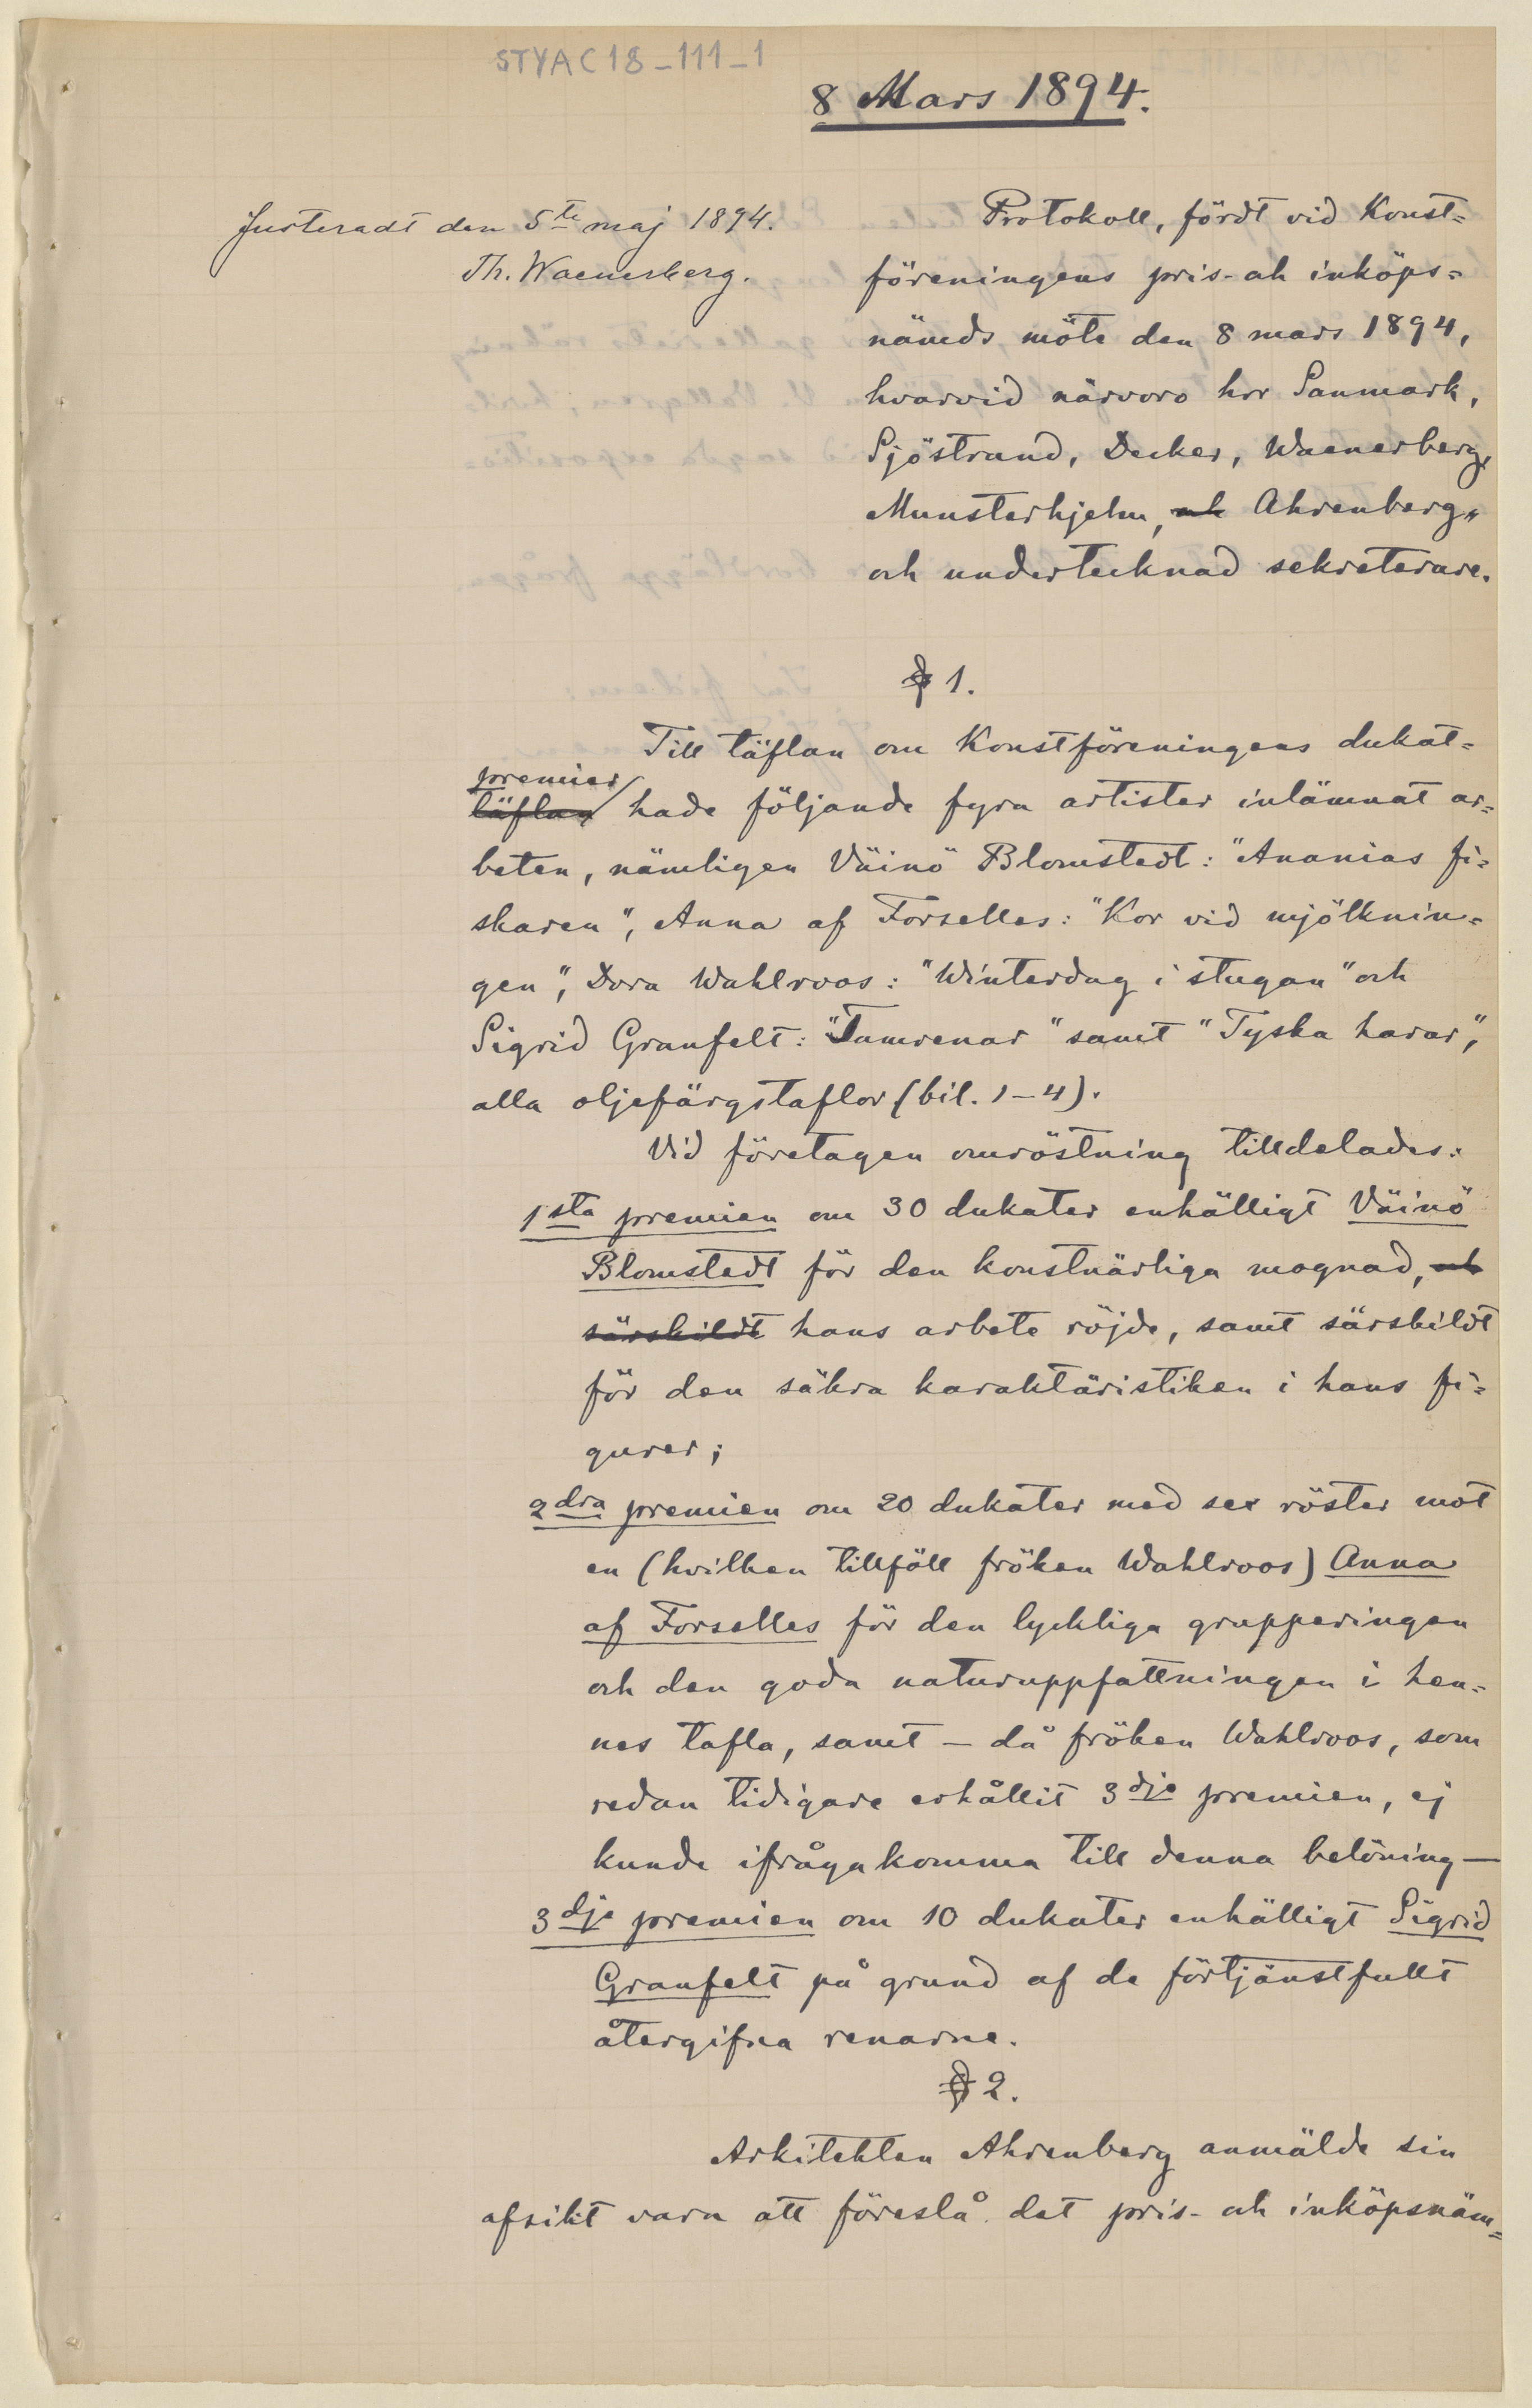 STYAC18_111_1
8 Mars 1894.
Justeradt den 5te maj 1894.
Th. Waenerberg.
Protokoll, fördt vid Konst=
föreningens pris- och inköps=
nämds möte den 8 mars 1894,
hvarvid närvoro hrr Sanmark,
Sjöstrand, Decker, Waenerberg,
Munsterhjelm, och Ahrenberg
och undertecknad sekreterare.
§ 1.
Till täflan om Konstföreningens dukat=
premier
täflan hade följande fyra artister inlämnat ar=
beten, nämligen Väinö Blomstedt: "Ananias fi=
skaren", Anna af Forselles: "Kor vid mjölknin=
gen", Dora Wahlroos: "Winterdag i stugan" och
Sigrid Granfelt: "Tamrenar" samt "Tyska harar",
alla oljefärgstaflor (bil. 1-4).
Vid företagen omröstning tilldelades:
1sta premien om 30 dukater enhälligt Väinö
Blomstedt för den konstnärliga mognad, och
särskildt hans arbete röjde, samt särskildt
för den säkra karaktäristiken i hans fi=
gurer;
2dra premien om 20 dukater med sex röster mot
en (hvilken tillföll fröken Wahlroos) Anna
af Forselles för den lyckliga grupperingen
och den goda naturuppfattningen i hen=
nes tafla, samt – då fröken Wahlroos, som
redan tidigare erhållit 3dje premien, ej
kunde ifrågakomma till denna belöning –
3dje premien om 10 dukater enhälligt Sigrid
Granfelt på grund af de förtjänstfullt
återgifna renarne.
§ 2.
Arkitekten Ahrenberg anmälde sin
afsikt vara att föreslå det pris- och inköpsnäm=